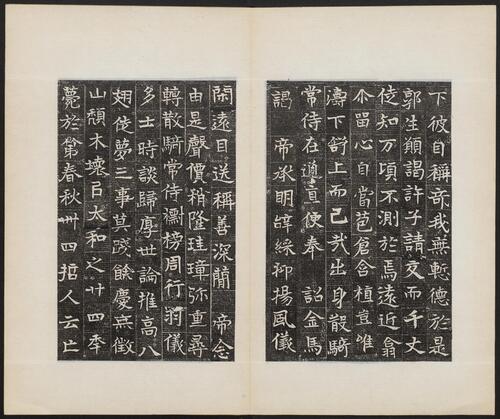 下彼自稱奇我無慙德於是
郭生傾謁許子請交而千丈
使知万頃不測於焉遠近翕
尒留心自當苞倉含植豈唯
濤下舒上而已哉出身散騎
常侍在遒直便奉 詔金馬
謁 帝承明辭綵抑揚風儀
閑遠目送稱善深簡 帝念
由是聲價稍隆珪璋弥重尋
轉散騎常侍摽榜周行羽儀
多士時談歸厚世論推高八
翅徒夢三事莫踐餘慶無徵
山頹木壞以太和之廿四年
薨於第春秋卌四 哲人云亡